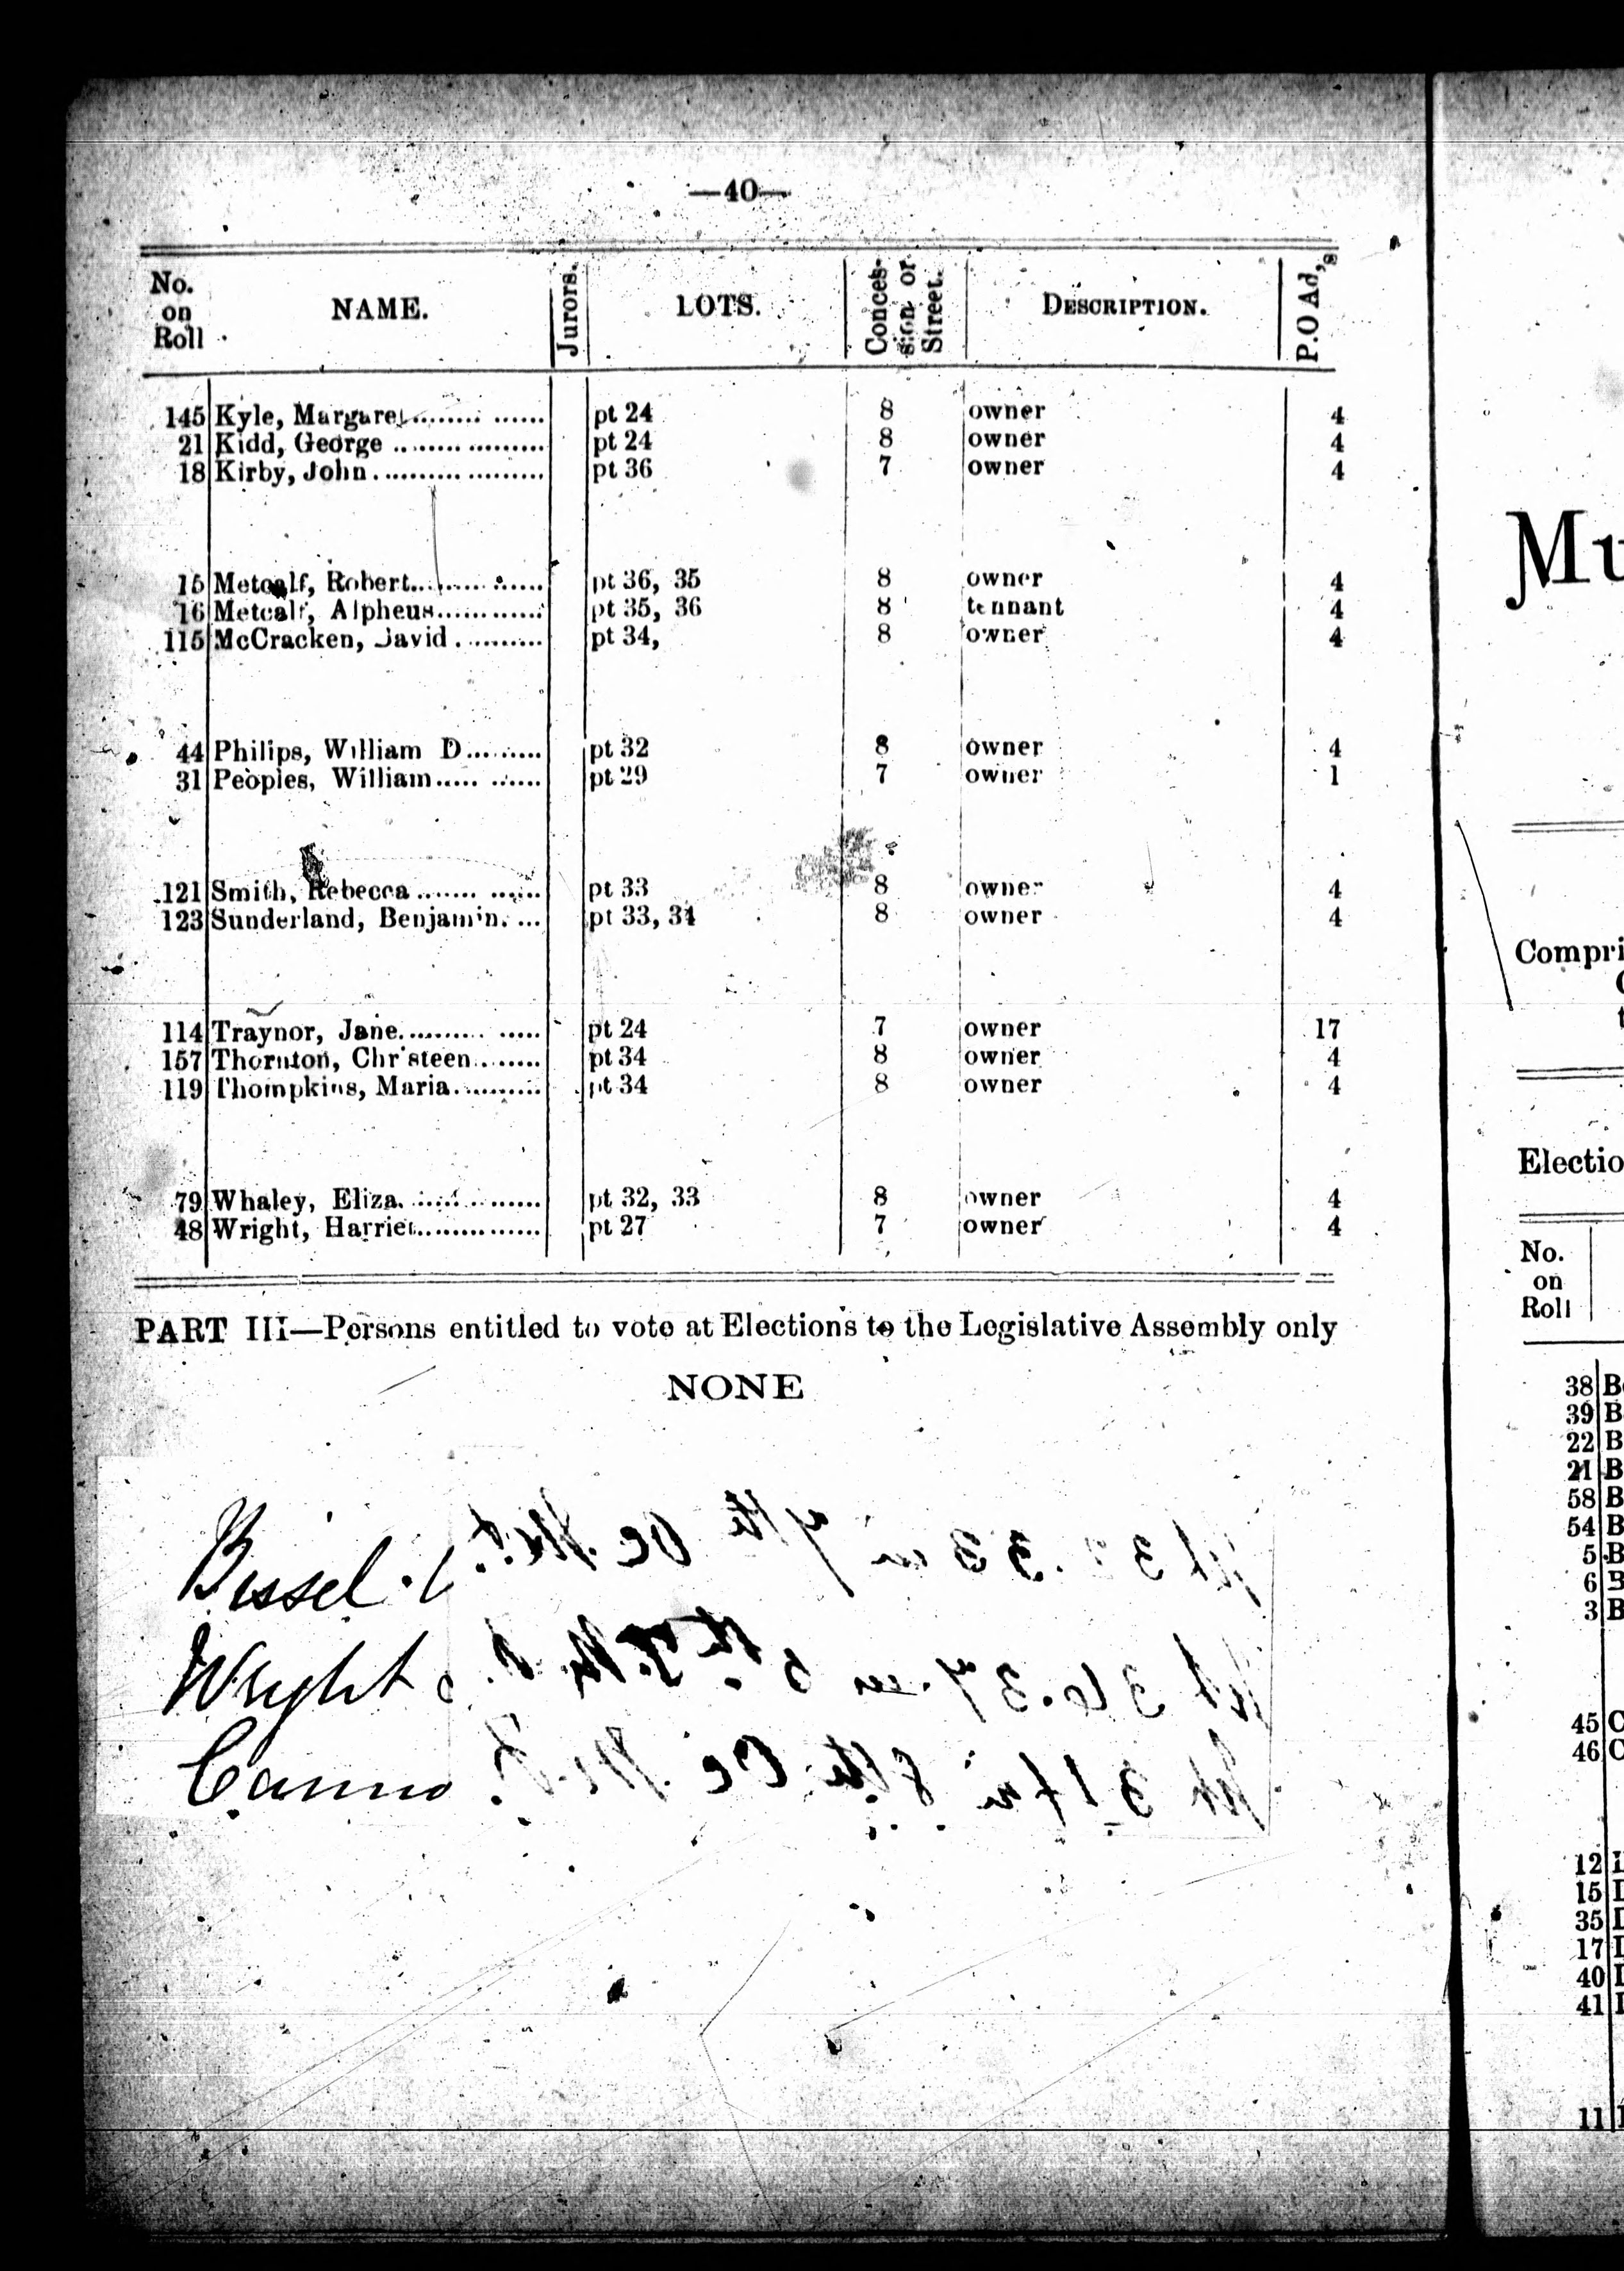 —40—
No. on Roll NAME. Jurors. LOTS. Conces-sion or Street. DESCRIPTION. P.O Ad,s
145 Kyle, Margaret pt 24 8 owner 4
21 Kidd, George pt 24 8 owner 4
18 Kirby, John pt 36 7 owner 4
15 Metcalf, Robert pt 36, 35 8 owner 4
16 Metcalf, Alpheus pt 35, 36 8 tennant 4
115 McCracken, David pt 34, 8 owner 4
44 Philips, William D pt 32 8 owner 4
31 Peoples, William pt 29 7 owner 1
121 Smith, Rebecca pt 33 8 owner 4
123 Sunderland, Benjamin pt 33, 34 8 owner 4
114 Traynor, Jane pt 24 7 owner 17
157 Thornton, Christeen pt 34 8 owner 4
119 Thompkins, Maria pt 34 8 owner 4
79 Whaley, Eliza pt 32, 33 8 owner 4
48 Wright, Harriet pt 27 7 owner 4
PART III—Persons entitled to vote at Elections to the Legislative Assembly only
NONE
Bissel
Wright
Mu
Compri
Electio
No.
on
Roll
38 B
39 B
22 B
21 B
58 B
54 B
5 B
6 B
3 B
45 C
46 C
12
15
35
17
40
41
11